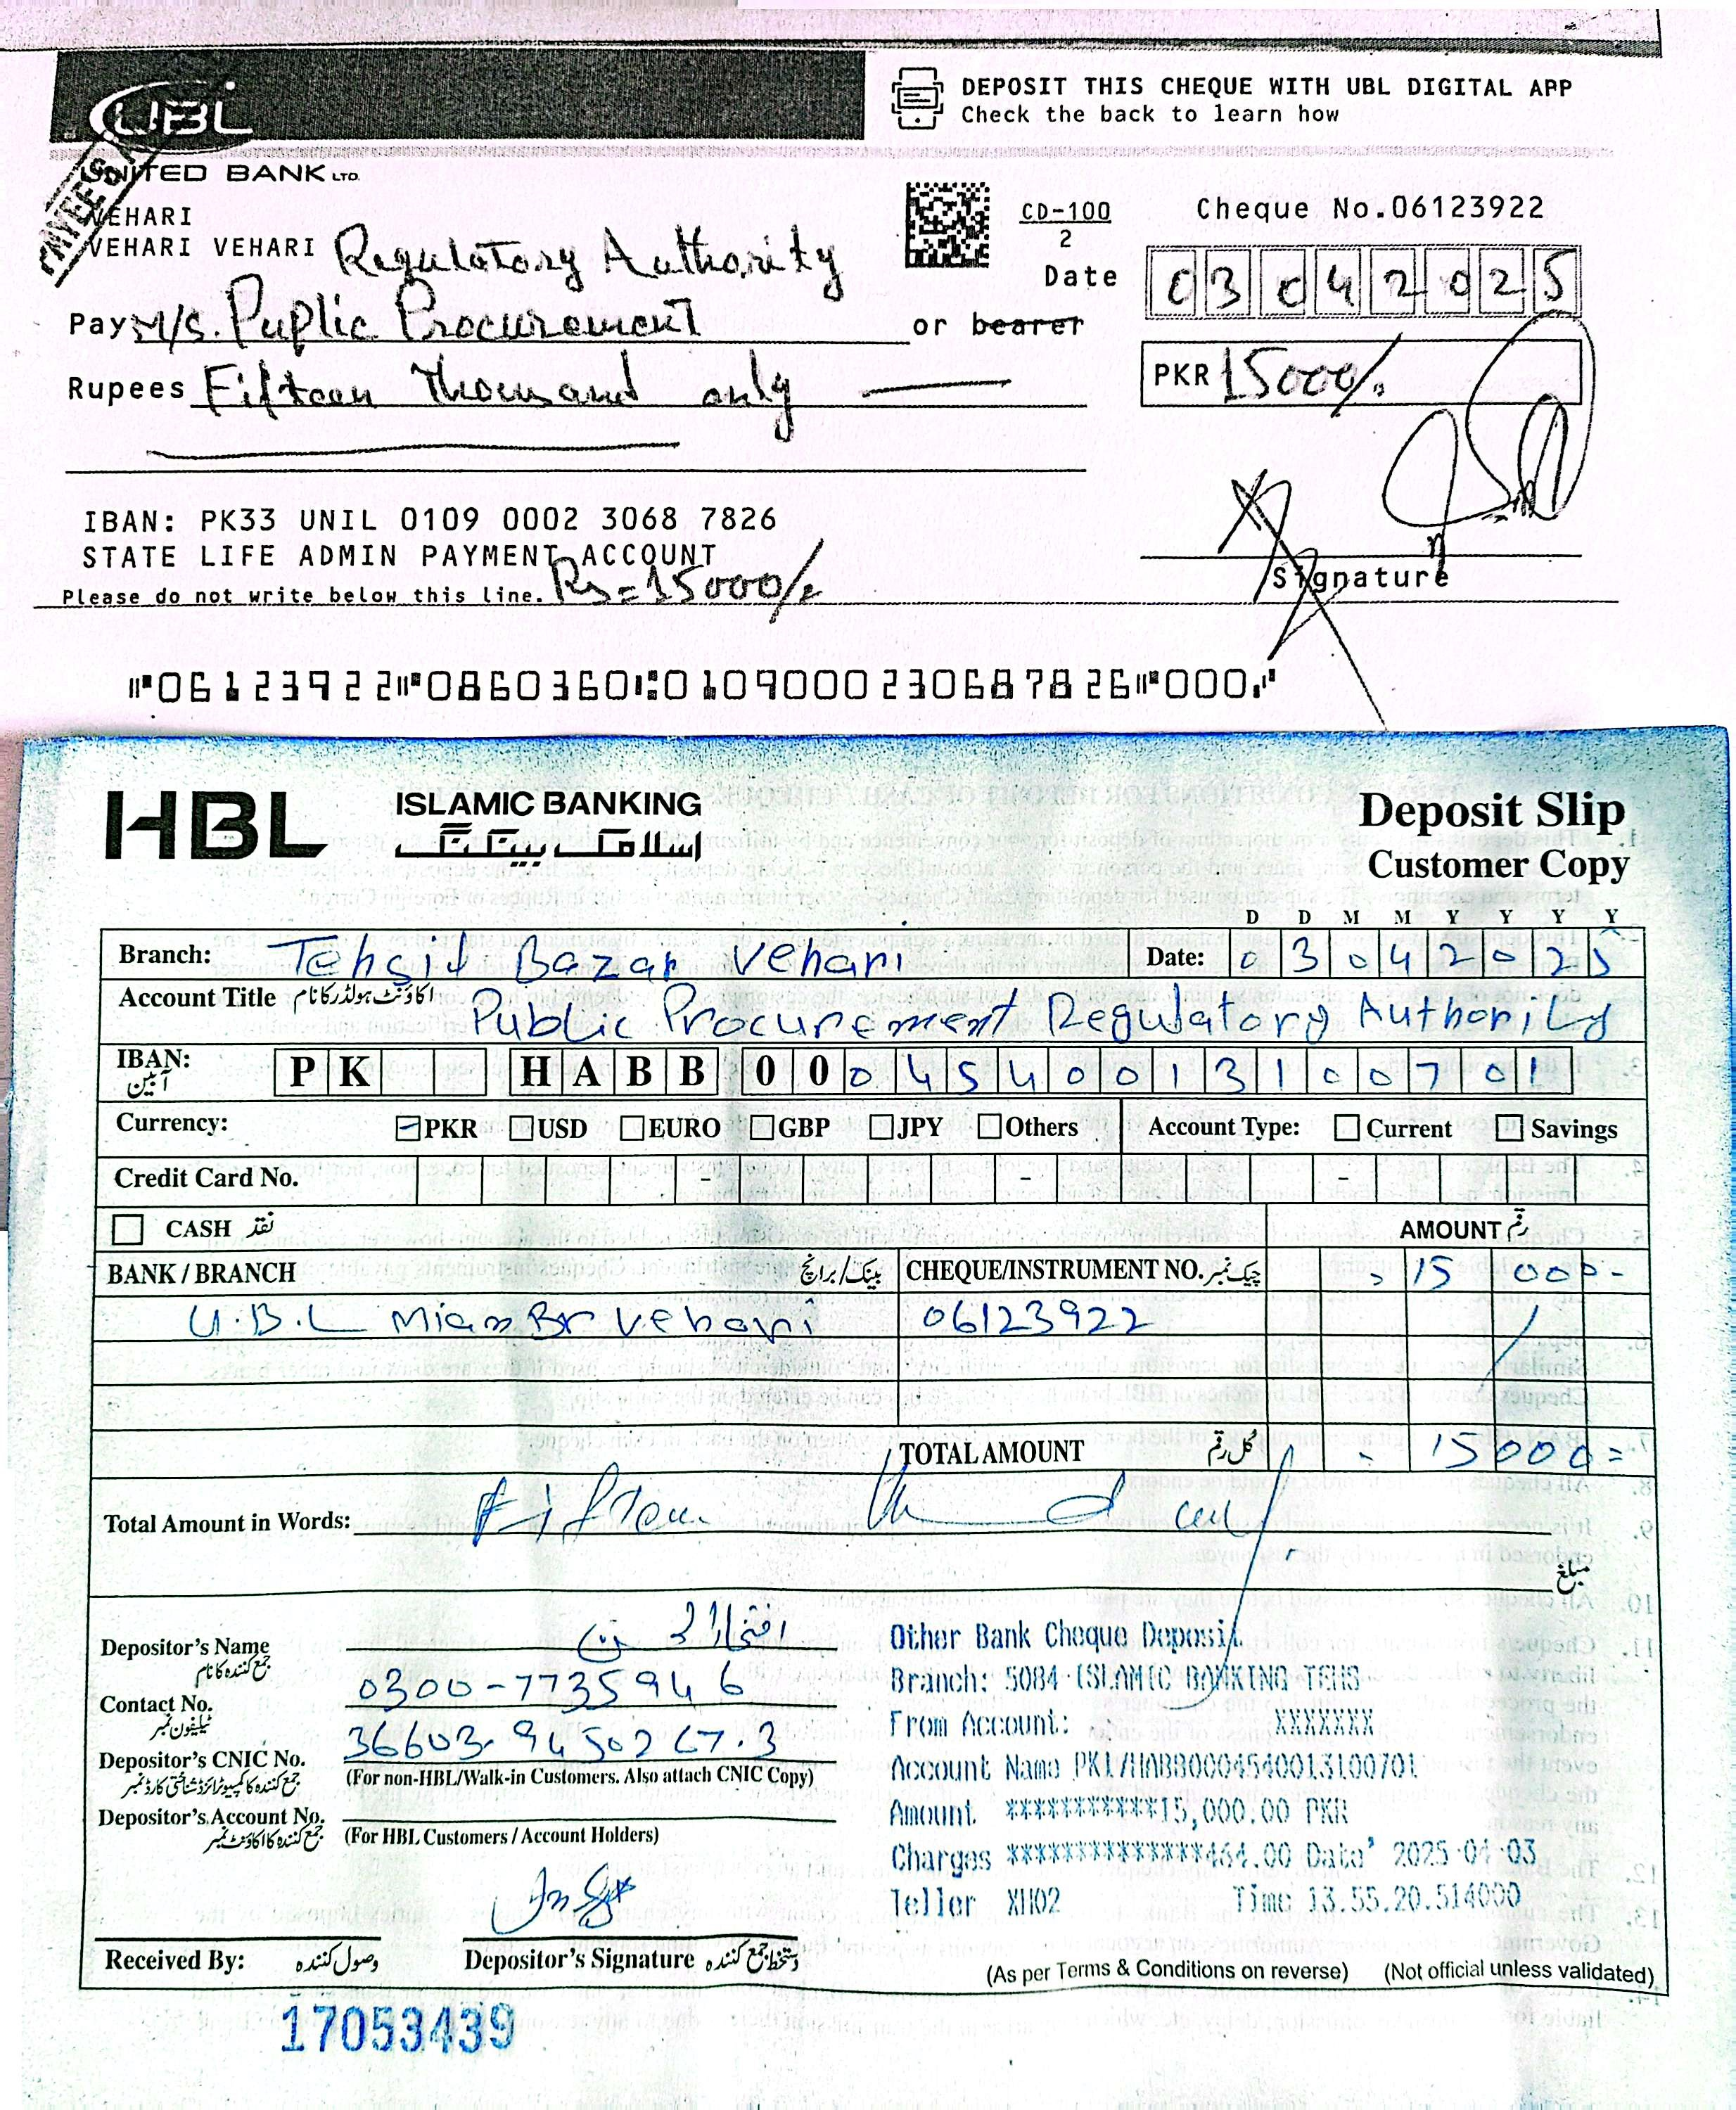 UBL
UNITED BANK LTD.
DEPOSIT THIS CHEQUE WITH UBL DIGITAL APP
Check the back to learn how
VEHARI
VEHARI VEHARI
CD-100
2
Cheque No.06123922
Date 03042025
Regulatory Authority
Pay M/S. Puplic Procurement or bearer
Rupees Fifteen Thousand only
PKR 15000/.
IBAN: PK33 UNIL 0109 0002 3068 7826
STATE LIFE ADMIN PAYMENT ACCOUNT
Rs=15000/=
Please do not write below this line.
Signature
06123922 0860360 0109000230687826 000
HBL ISLAMIC BANKING
اسلامک بینکنگ
Deposit Slip
Customer Copy
D D M M Y Y Y Y
Branch: Tehsil Bazar Vehari Date: 03042025
Account Title اکاؤنٹ ہولڈر کا نام Public Procurement Regulatory Authority
IBAN: PK HABB 0004540013100701
آئبین
Currency: PKR USD EURO GBP JPY Others Account Type: Current Savings
Credit Card No. - - -
CASH نقد AMOUNT رقم
BANK / BRANCH بینک/برانچ CHEQUE/INSTRUMENT NO. چیک نمبر 15 000-
U.B.L Mian Br Vehari 06123922
TOTAL AMOUNT کل رقم 15000=
Total Amount in Words: Fifteen
مبلغ
Depositor's Name
جمع کنندہ کا نام
Contact No. 0300-7735946
ٹیلیفون نمبر
Depositor's CNIC No. 36603-9450267-3
جمع کنندہ کا کمپیوٹرائزڈ شناختی کارڈ نمبر
(For non-HBL/Walk-in Customers. Also attach CNIC Copy)
Depositor's Account No.
جمع کنندہ کا اکاؤنٹ نمبر
(For HBL Customers / Account Holders)
Other Bank Cheque Deposit
Branch: 5084 ISLAMIC BANKING TEHS
From Account: XXXXXXX
Account Name PK17HABB0004540013100701
Amount ***********15,000.00 PKR
Charges **************464.00 Date' 2025-04-03
Teller XH02 Time 13.55.20.514000
Received By: وصول کنندہ
Depositor's Signature دستخط جمع کنندہ
(As per Terms & Conditions on reverse) (Not official unless validated)
17053439